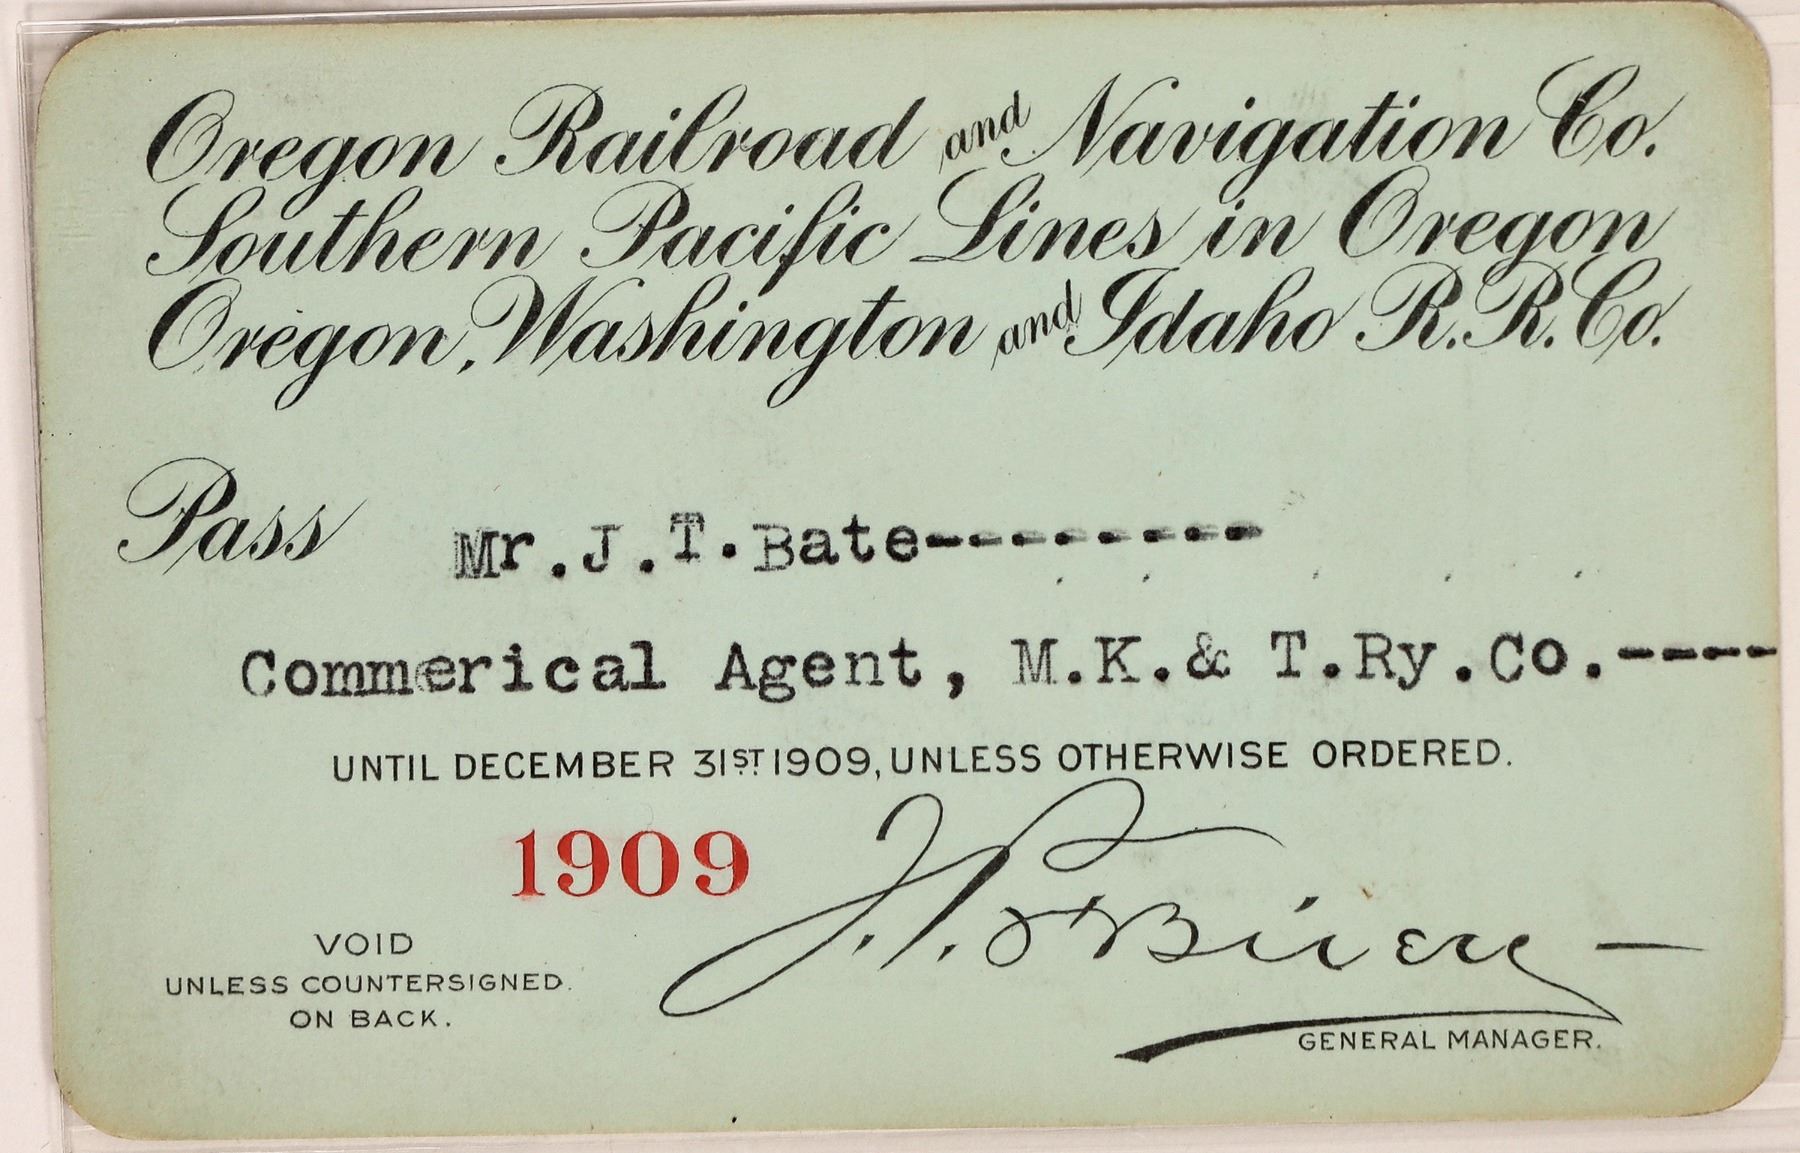 Oregon Railroad and Navigation Co.
Southern Pacific Lines in Oregon
Oregon, Washington and Idaho R. R. Co.
Pass Mr. J. T. Bate---------
Commerical Agent, M.K.& T.Ry.Co.----
UNTIL DECEMBER 31ST 1909, UNLESS OTHERWISE ORDERED.
1909
VOID
UNLESS COUNTERSIGNED.
ON BACK.
J. P. O'Brien
GENERAL MANAGER.